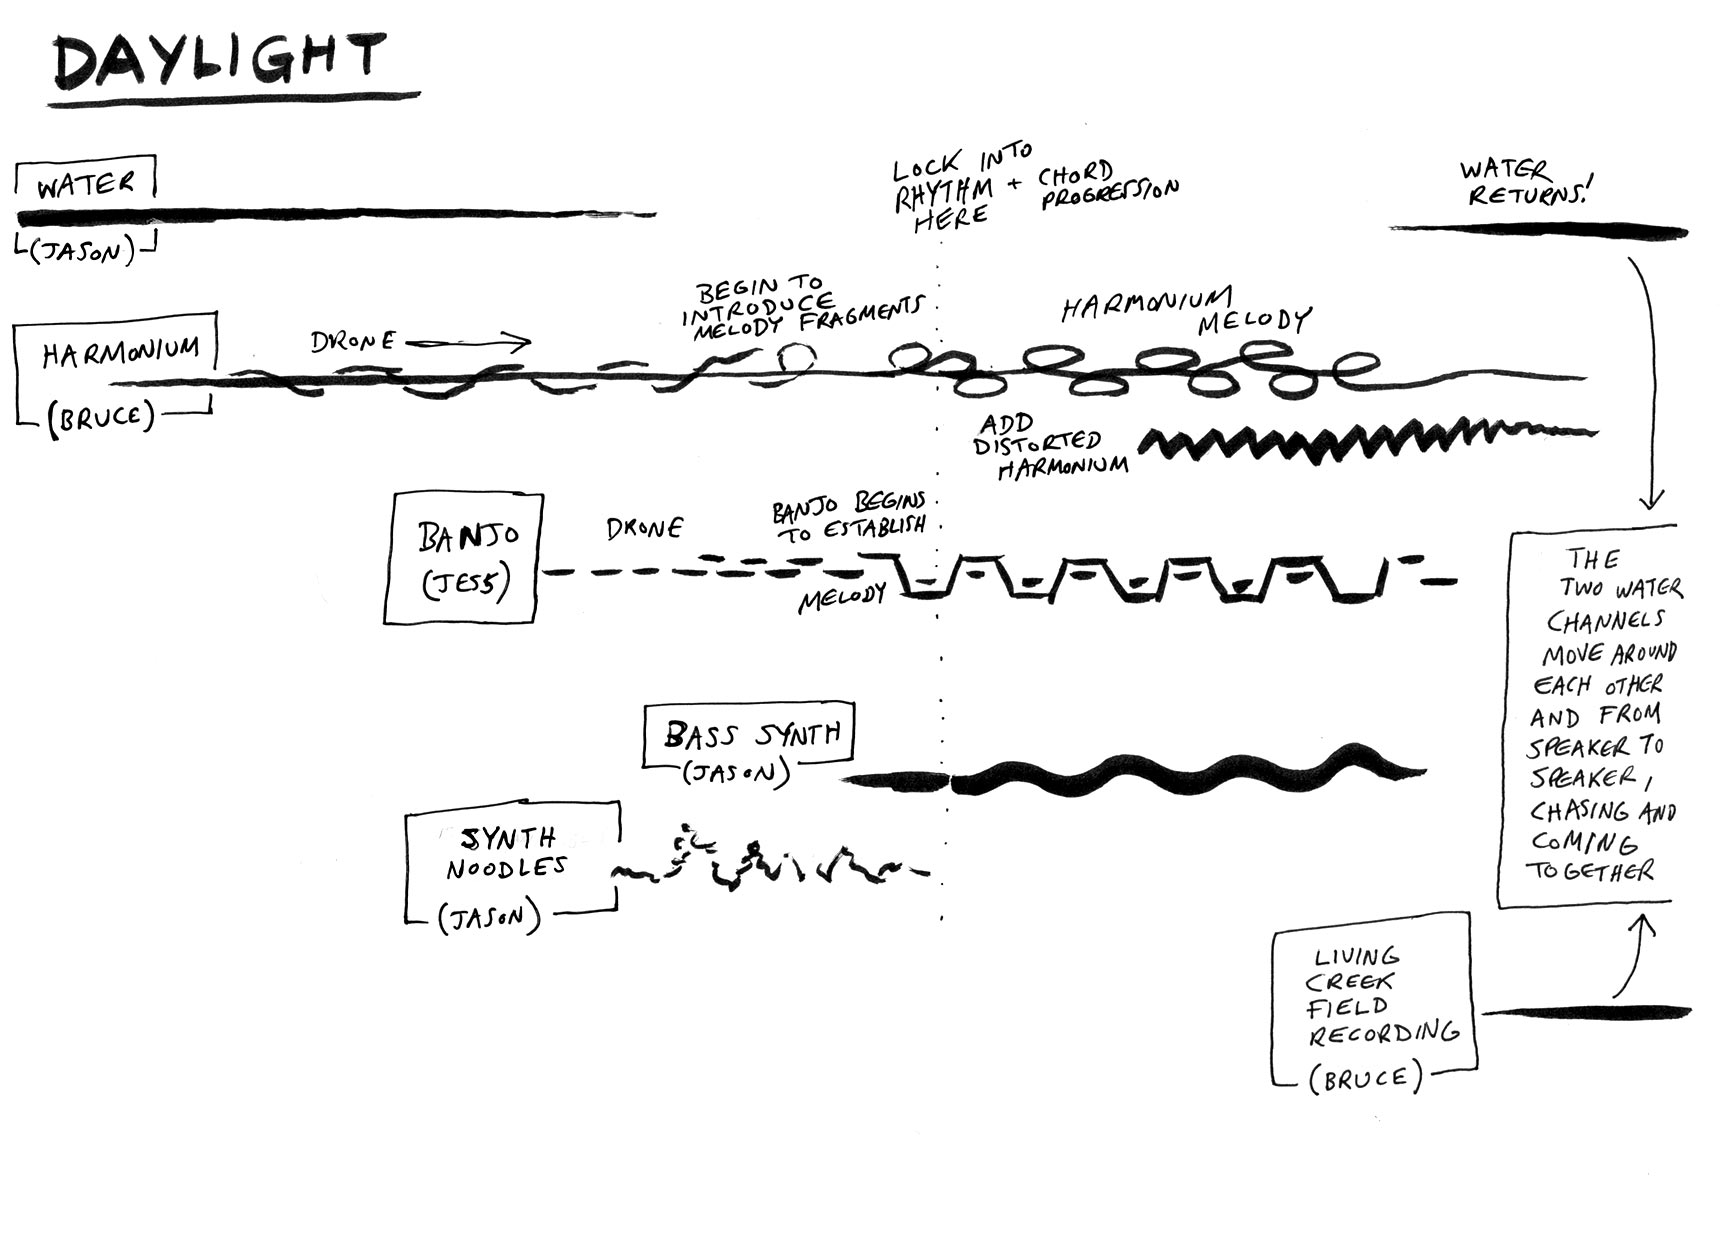 DAYLIGHT
WATER
(JASON)
LOCK INTO
RHYTHM + CHORD
PROGRESSION
HERE
WATER
RETURNS!
HARMONIUM
(BRUCE)
DRONE
BEGIN TO
INTRODUCE
MELODY FRAGMENTS
HARMONIUM
MELODY
ADD
DISTORTED
HARMONIUM
BANJO
(JESS)
DRONE
BANJO BEGINS
TO ESTABLISH
MELODY
THE
TWO WATER
CHANNELS
MOVE AROUND
EACH OTHER
AND FROM
SPEAKER TO
SPEAKER,
CHASING AND
COMING
TOGETHER
BASS SYNTH
(JASON)
SYNTH
NOODLES
(JASON)
LIVING
CREEK
FIELD
RECORDING
(BRUCE)